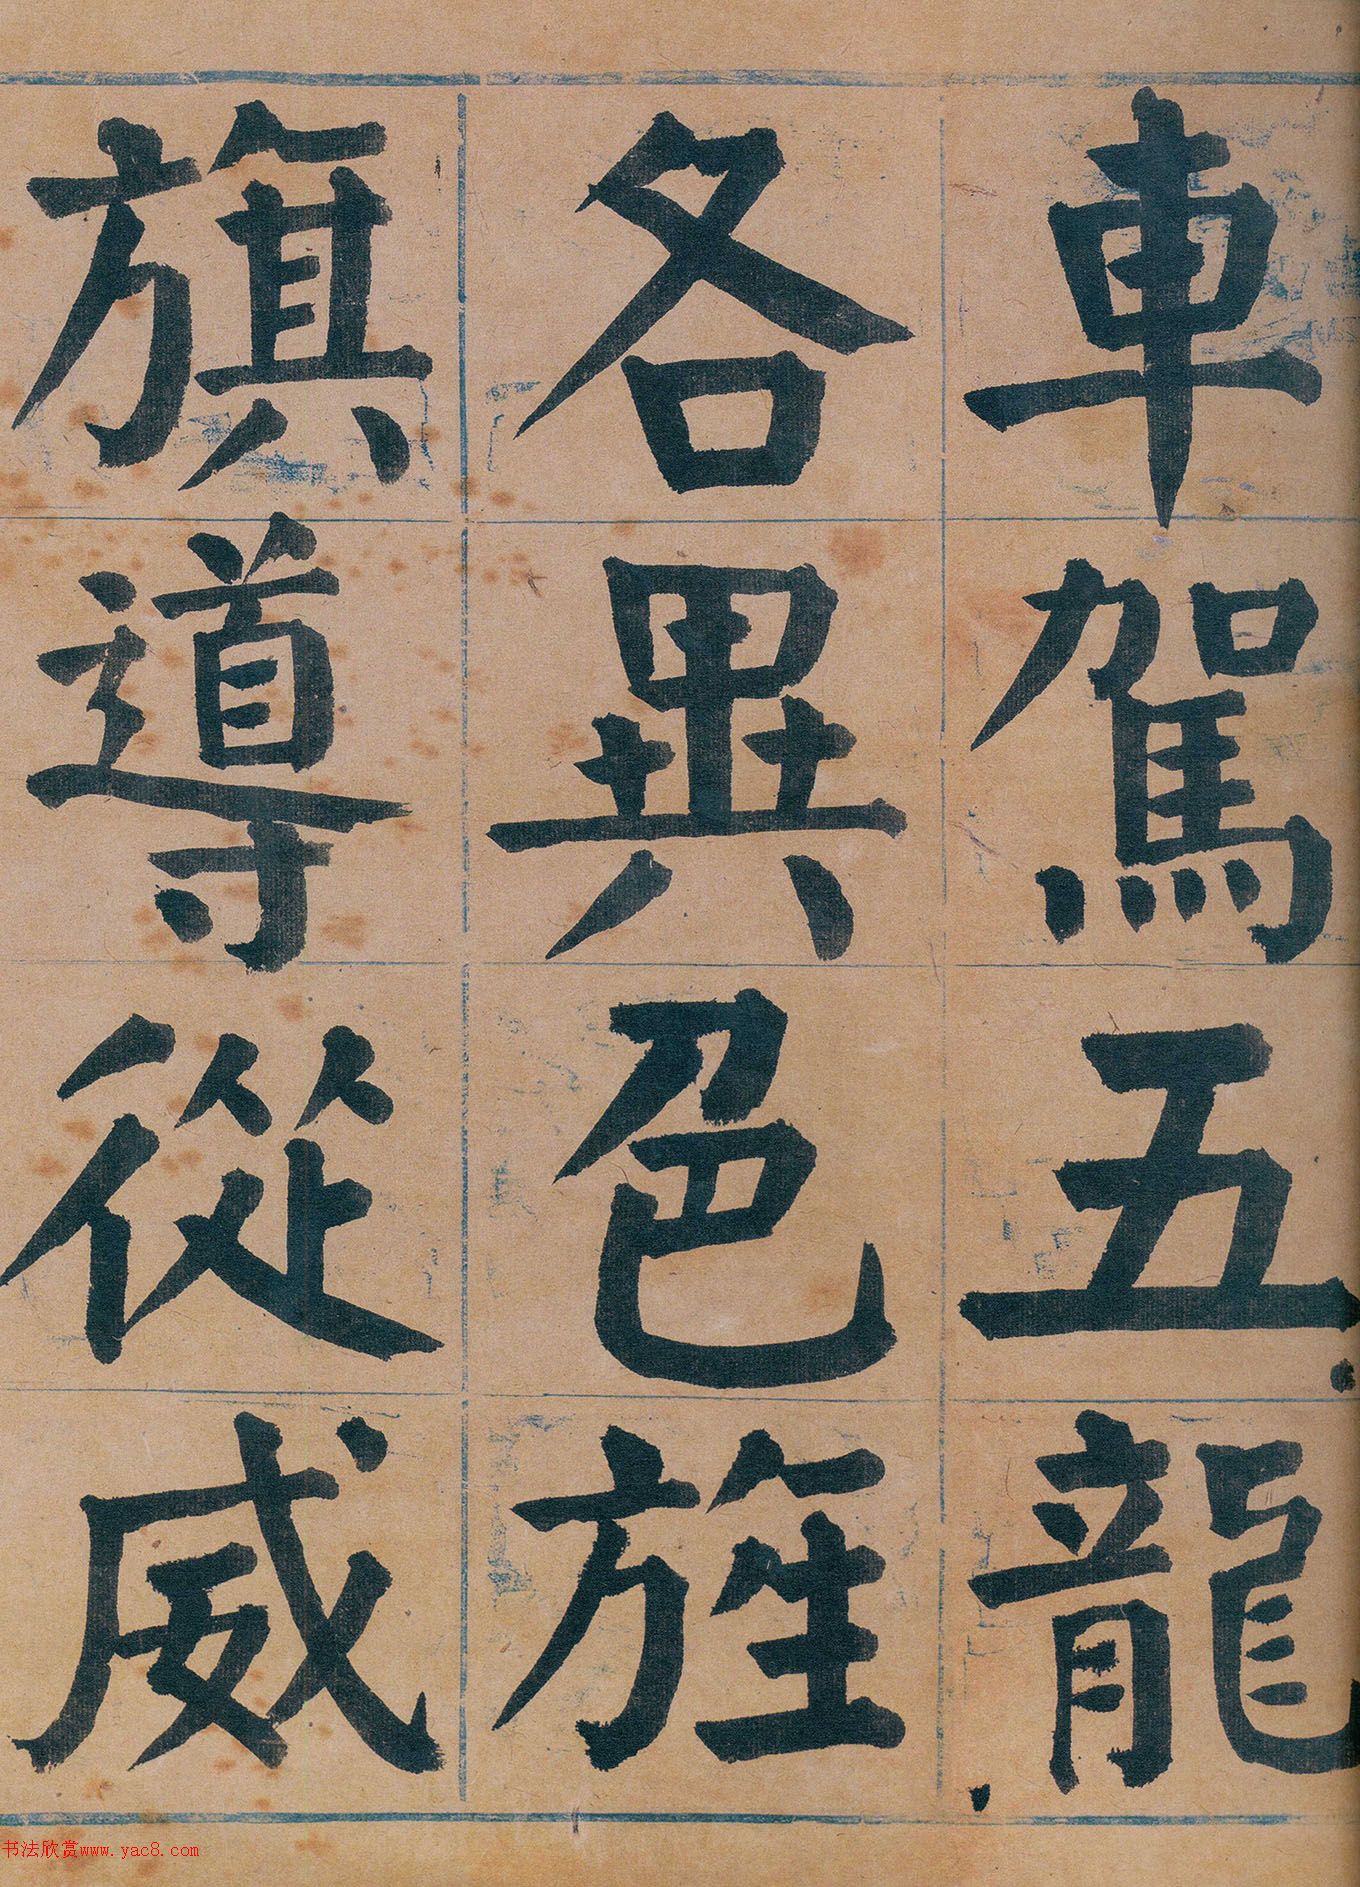 車駕五龍
各異色旌
旗導從威
书法欣赏www.yac8.com